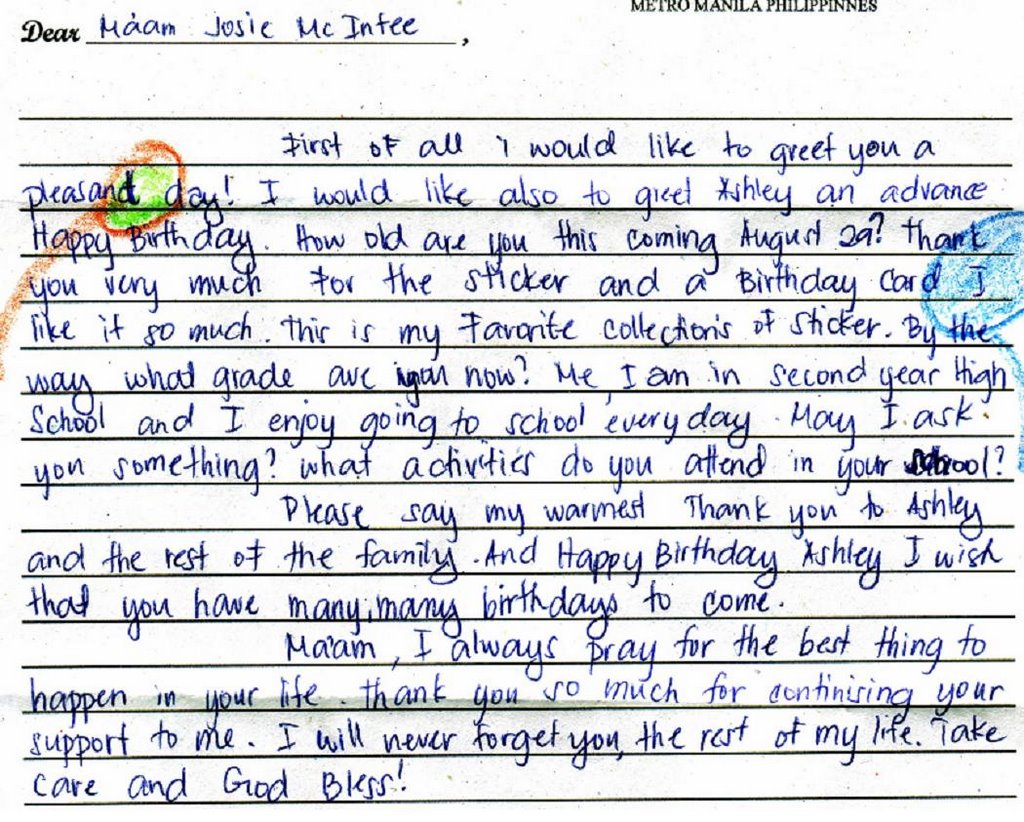 METRO MANILA PHILIPPINNES
Dear Ma'am Josie Mc Intee,
First of all i would like to greet you a
pleasand day! I would like also to greet Ashley an advance
Happy Birthday. How old are you this coming August 29? Thank
you very much for the sticker and a Birthday Card I
like it so much. This is my Favorite collection's of sticker. By the
way what grade are you now? Me, I am in second year High
School and I enjoy going to school everyday. May I ask
you something? what activities do you attend in your school?
Please say my warmest Thank you to Ashley
and the rest of the family. And Happy Birthday Ashley I wish
that you have many, many birthdays to come.
Ma'am, I always pray for the best thing to
happen in your life. thank you so much for continising your
support to me. I will never forget you, the rest of my life. Take
Care and God Bless!